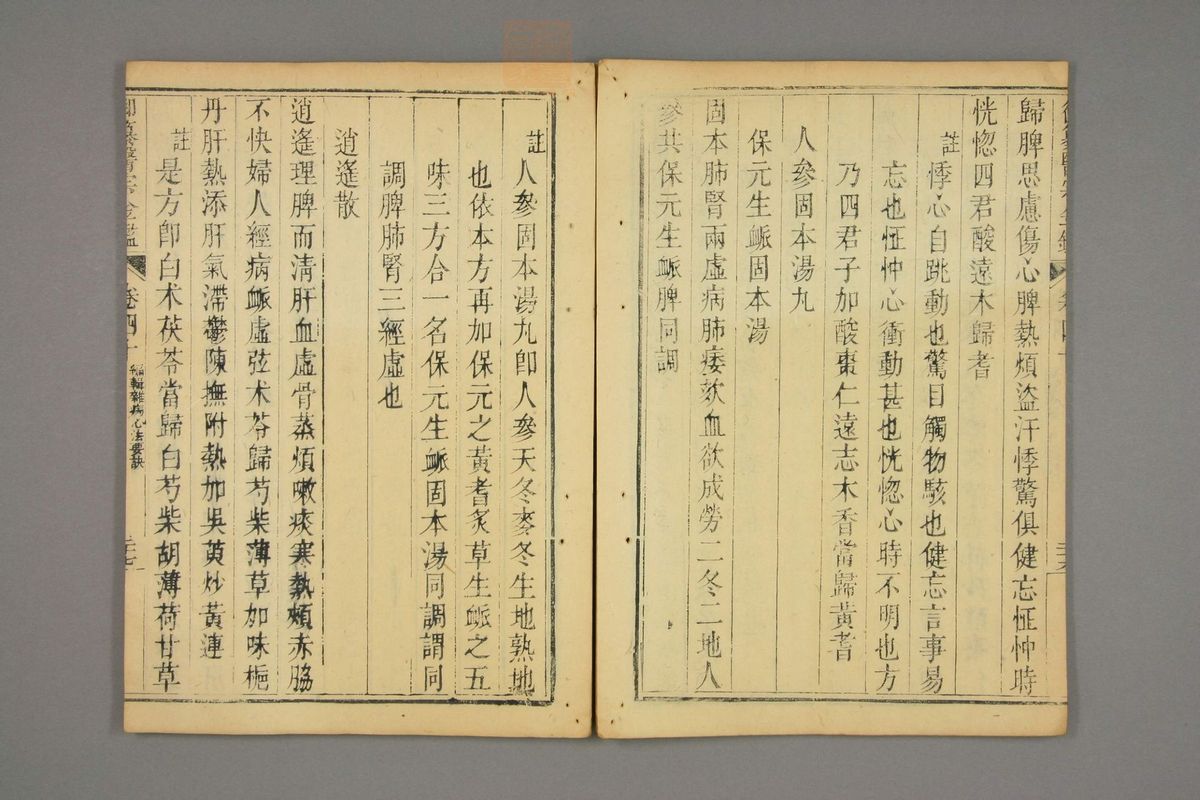 歸脾思慮傷心脾熱煩盜汗悸驚俱健忘怔忡時
恍惚四君酸遠木歸耆
註悸心自跳動也驚目觸物駭也健忘言事易
忘也怔忡心衝動甚也恍惚心時不明也方
乃四君子加酸棗仁遠志木香當歸黃耆
人參固本湯丸
保元生脈固本湯
固本肺腎兩虛病肺痿欬血欲成勞二冬二地人
參共保元生脈脾同調
註人參固本湯丸卽人參天冬麥冬生地熟地
也依本方再加保元之黃耆炙草生脈之五
味三方合一名保元生脈固本湯同調謂同
調脾肺腎三經虛也
逍遙散
逍遙理脾而清肝血虛骨蒸煩嗽痰寒熱頰赤脇
不快婦人經病脈虛弦术苓歸芍柴薄草加味梔
丹肝熱添肝氣滯鬱陳撫附熱加吳萸炒黃連
註是方卽白术茯苓當歸白芍柴胡薄荷甘草
御纂醫宗金鑑 卷四十 編輯雜病心法要訣